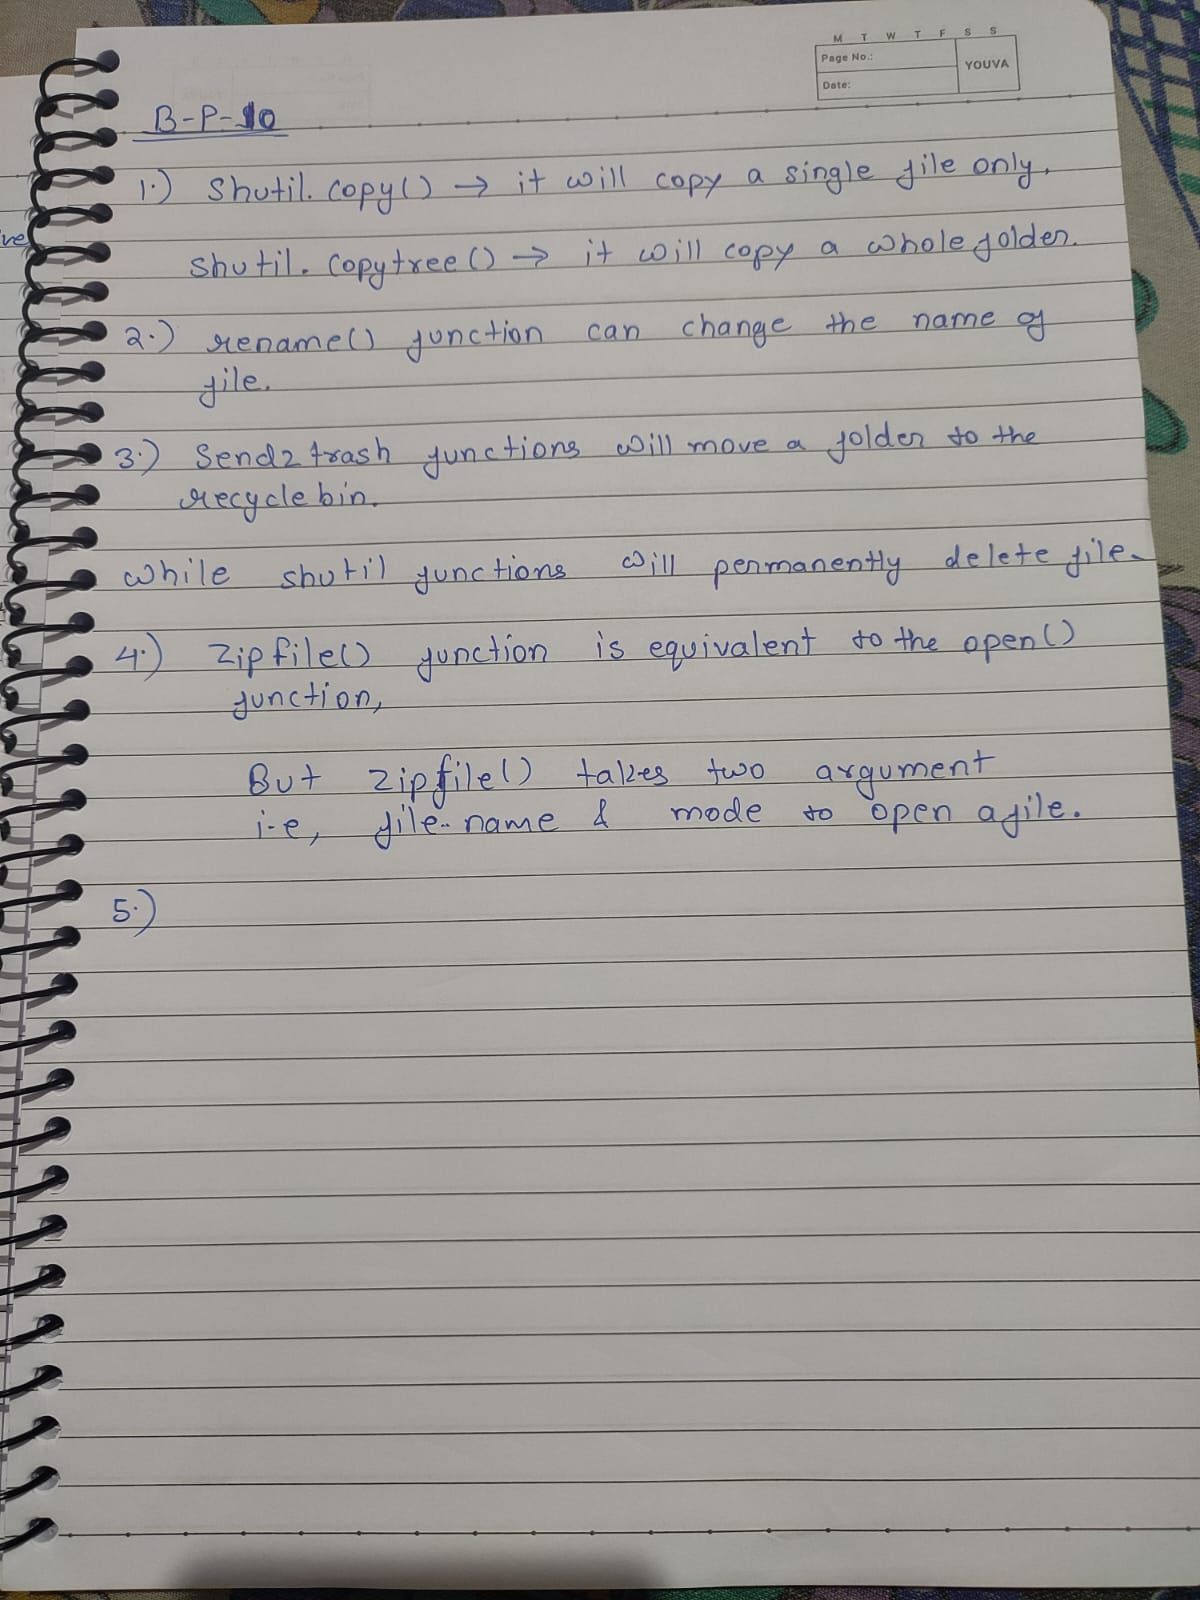 M T W T F S S
Page No.:
YOUVA
Date:
B-P-10
1.) Shutil.copy() → it will copy a single file only.
Shutil.copytree() → it will copy a whole folder.
2.) rename() function can change the name of
file.
3.) Send2trash functions will move a folder to the
recycle bin.
while shutil functions will permanently delete file.
4.) Zipfile() function is equivalent to the open()
function,
But zipfile() takes two argument
i-e, file-name & mode to open a file.
5.)